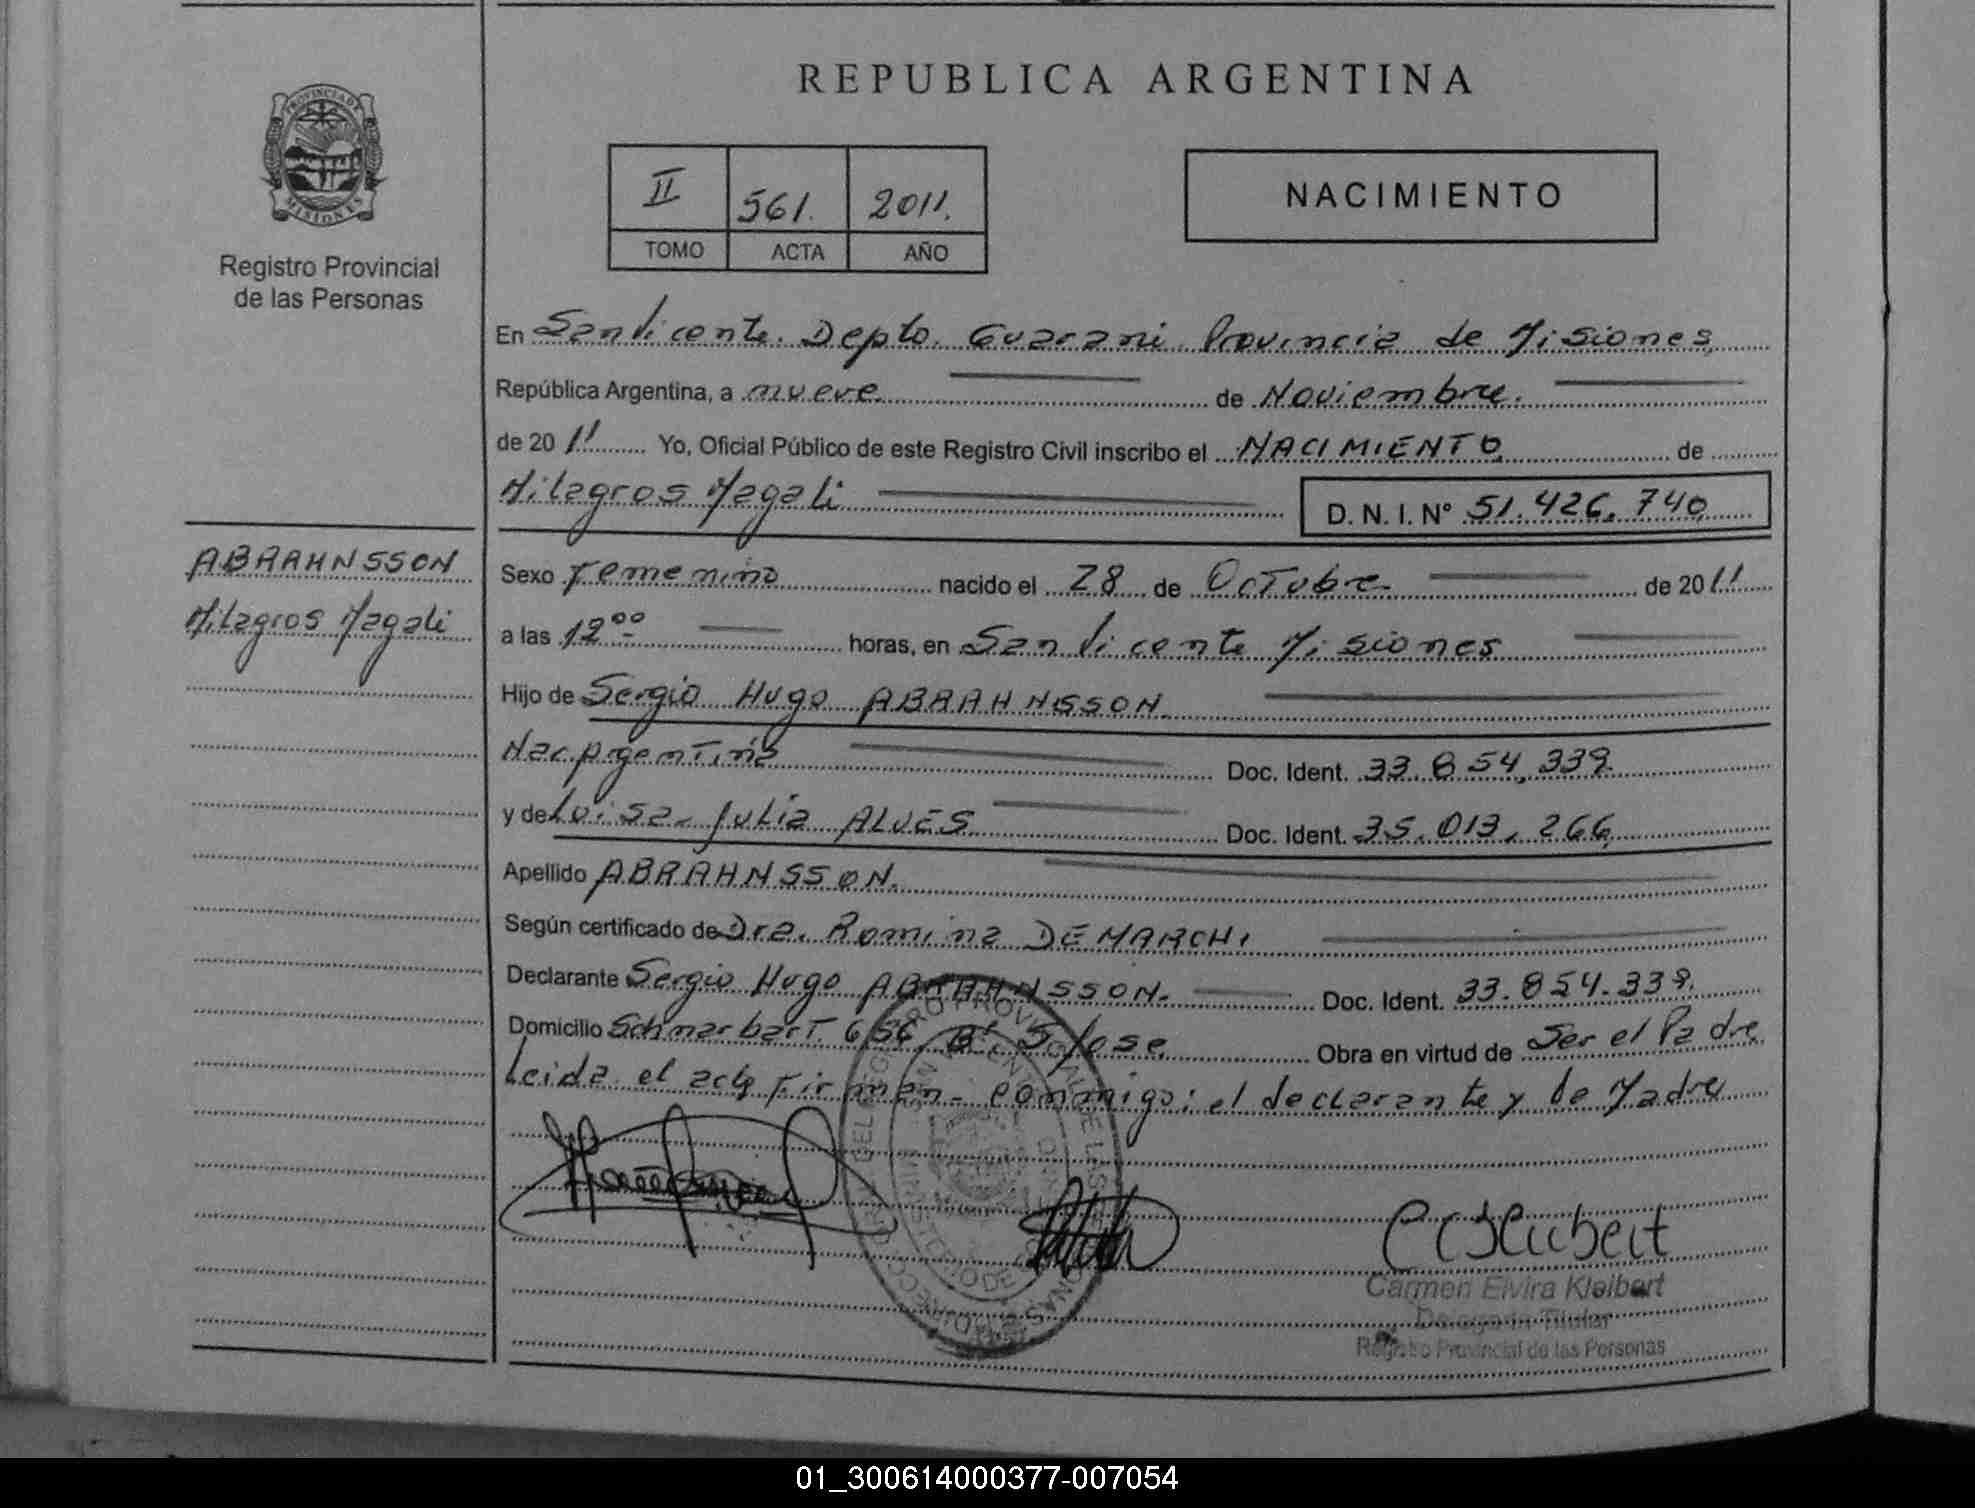 PROVINCIA DE
MISIONES
Registro Provincial
de las Personas
ABRAHNSSON
Milagros Magali
REPUBLICA ARGENTINA
II 561. 2011.
TOMO ACTA AÑO
NACIMIENTO
En San Vicente. Depto. Guarani Provincia de Misiones
República Argentina, a nueve de Noviembre.
de 2011 Yo, Oficial Público de este Registro Civil inscribo el NACIMIENTO de
Milagros Magali D. N. I. N° 51.426.740
Sexo Femenino nacido el 28 de Octubre de 2011
a las 12 00 horas, en San Vicente Misiones
Hijo de Sergio Hugo ABRAHNSSON
Nac. Argentina Doc. Ident. 33.854.339
y de Luisa Julia ALVES Doc. Ident. 35.013.266
Apellido ABRAHNSSON.
Según certificado de Dra. Romina DEMARCHI
Declarante Sergio Hugo ABRAHNSSON. Doc. Ident. 33.854.339.
Domicilio 656 B° S. Jose Obra en virtud de Ser el Padre
Leida el acta Firman conmigo: el declarante y la Madre
Carmen Elvira Kleibert
Delegada Titular
Registro Provincial de las Personas
01_300614000377-007054